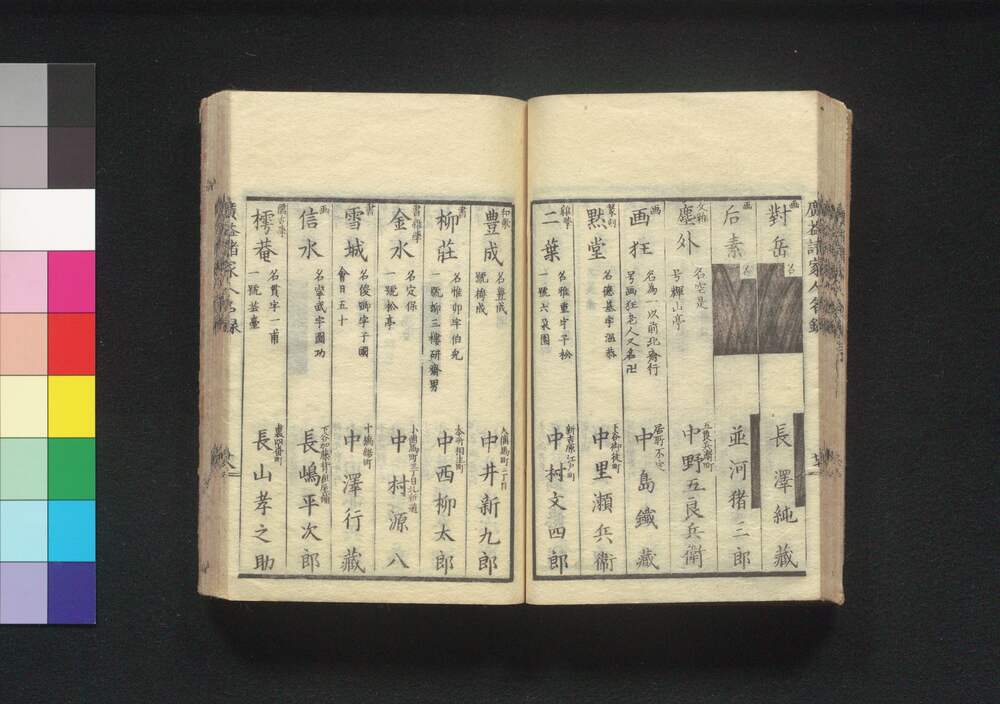 廣益諸家人名録
画 對岳 名 長澤純藏
画 后素 名 並河猪三郎
塵外 名空是 号輝山亭 五良兵衛町 中野五良兵衛
画 画狂 名為一以前北斎行 号画狂老人又名卍 居所不定 中島鐵藏
篆刻 黙堂 名德基字温恭 下谷御徒町 中里瀬兵衛
雑學 二葉 名雅重字子松 一號六朶園 新吉原江戸町 中村文四郎
和歌 豊成 名豊成 號梅成 大傳馬町二丁目 中井新九郎
書 柳荘 名惟卯字伯免 一號柳三樓研齋男 本所相生町 中西柳太郎
書 雑學 金水 名定保 一號松亭 小傳馬町三丁目北新道 中村源八
書 雪城 名俊卿字子國 會日五十 中澤行藏
画 信水 名字武字圖功 長嶋平次郎
儒 樗菴 名貫字一甫 一號芸臺 裏四番町 長山孝之助
廣益諸家人名録